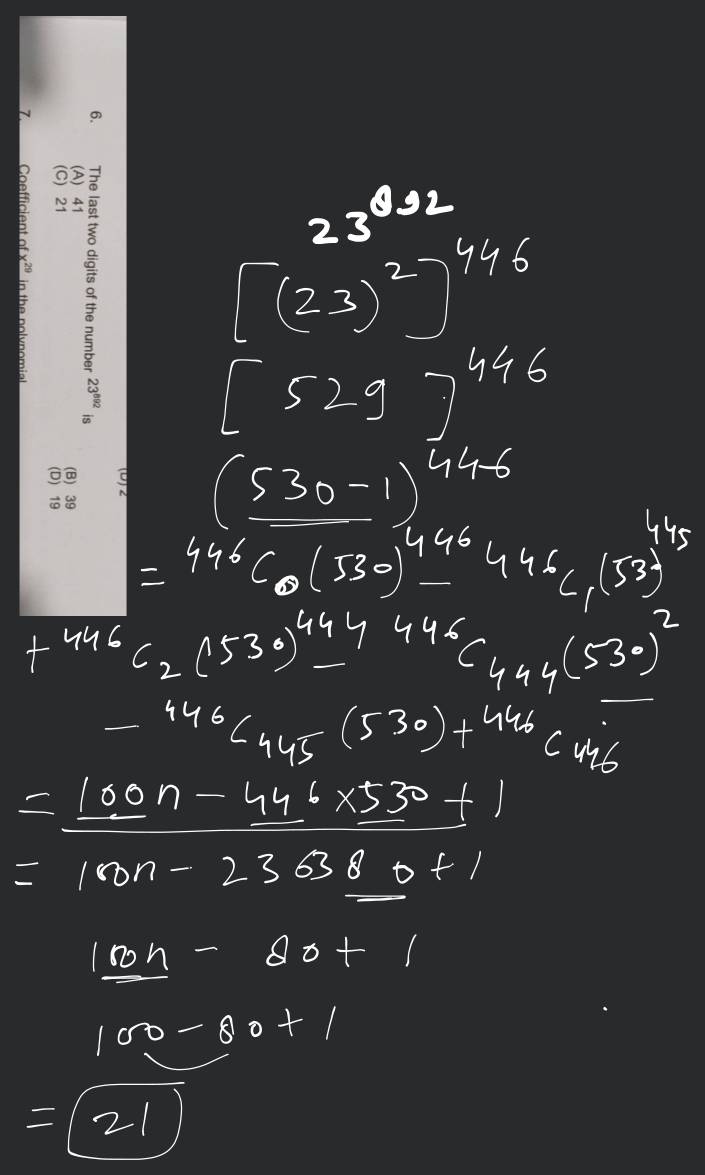 (D) 2
6. The last two digits of the number 23^892 is
(A) 41 (B) 39
(C) 21 (D) 19
7. Coefficient of x^29 in the polynomial
23^892
[(23)^2]^446
[529]^446
(530-1)^446
= 446C0(530)^446 - 446C1(530)^445
+ 446C2(530)^444 - 446C444(530)^2
- 446C445(530) + 446C446
= 100n - 446×530 + 1
= 100n - 236380 + 1
100n - 80 + 1
100 - 80 + 1
= 21